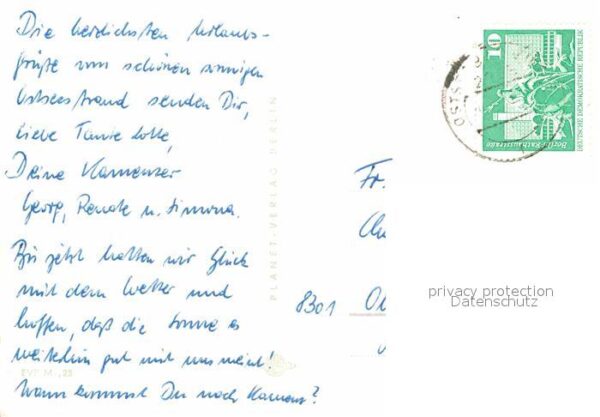 Die herzlichsten Urlaubs-
grüße vom schönen sonnigen
Ostseestrand senden Dir,
liebe Tante Lotte,
Deine Kamenzer
Georg, Renate u. Simona.
Bis jetzt hatten wir Glück
mit dem Wetter und
hoffen, daß die Sonne es
weiterhin gut mit uns meint!
Wann kommst Du nach Kamenz?
PLANET-VERLAG BERLIN
EVP M -,25
10
DEUTSCHE DEMOKRATISCHE REPUBLIK
Berlin, Rathausstraße
OSTS
Fr.
8301
privacy protection
Datenschutz